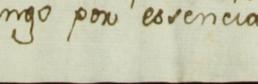 ngo por essencia